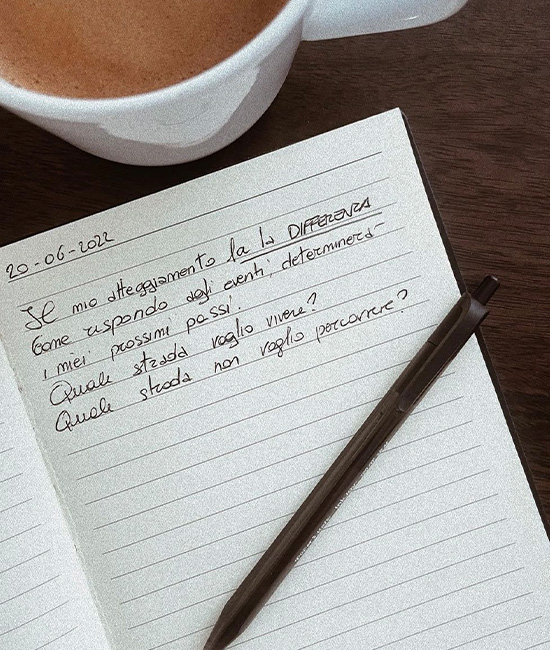 20-06-2022
Il mio atteggiamento fa la DIFFERENZA
Come rispondo agli eventi, determinerà
i miei prossimi passi.
Quale strada voglio vivere?
Quale strada non voglio percorrere?